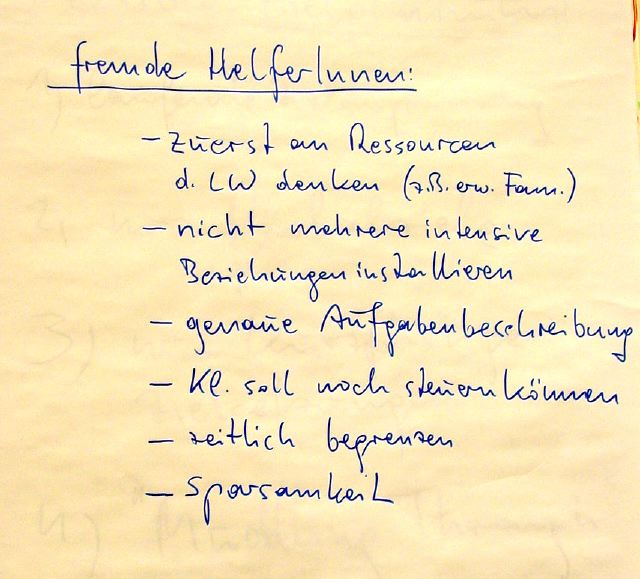 fremde HelferInnen:
– zuerst an Ressourcen
d. LW denken (z.B. erw. Fam.)
– nicht mehrere intensive
Beziehungen installieren
– genaue Aufgabenbeschreibung
– Kl. soll noch steuern können
– zeitlich begrenzen
– Sparsamkeit